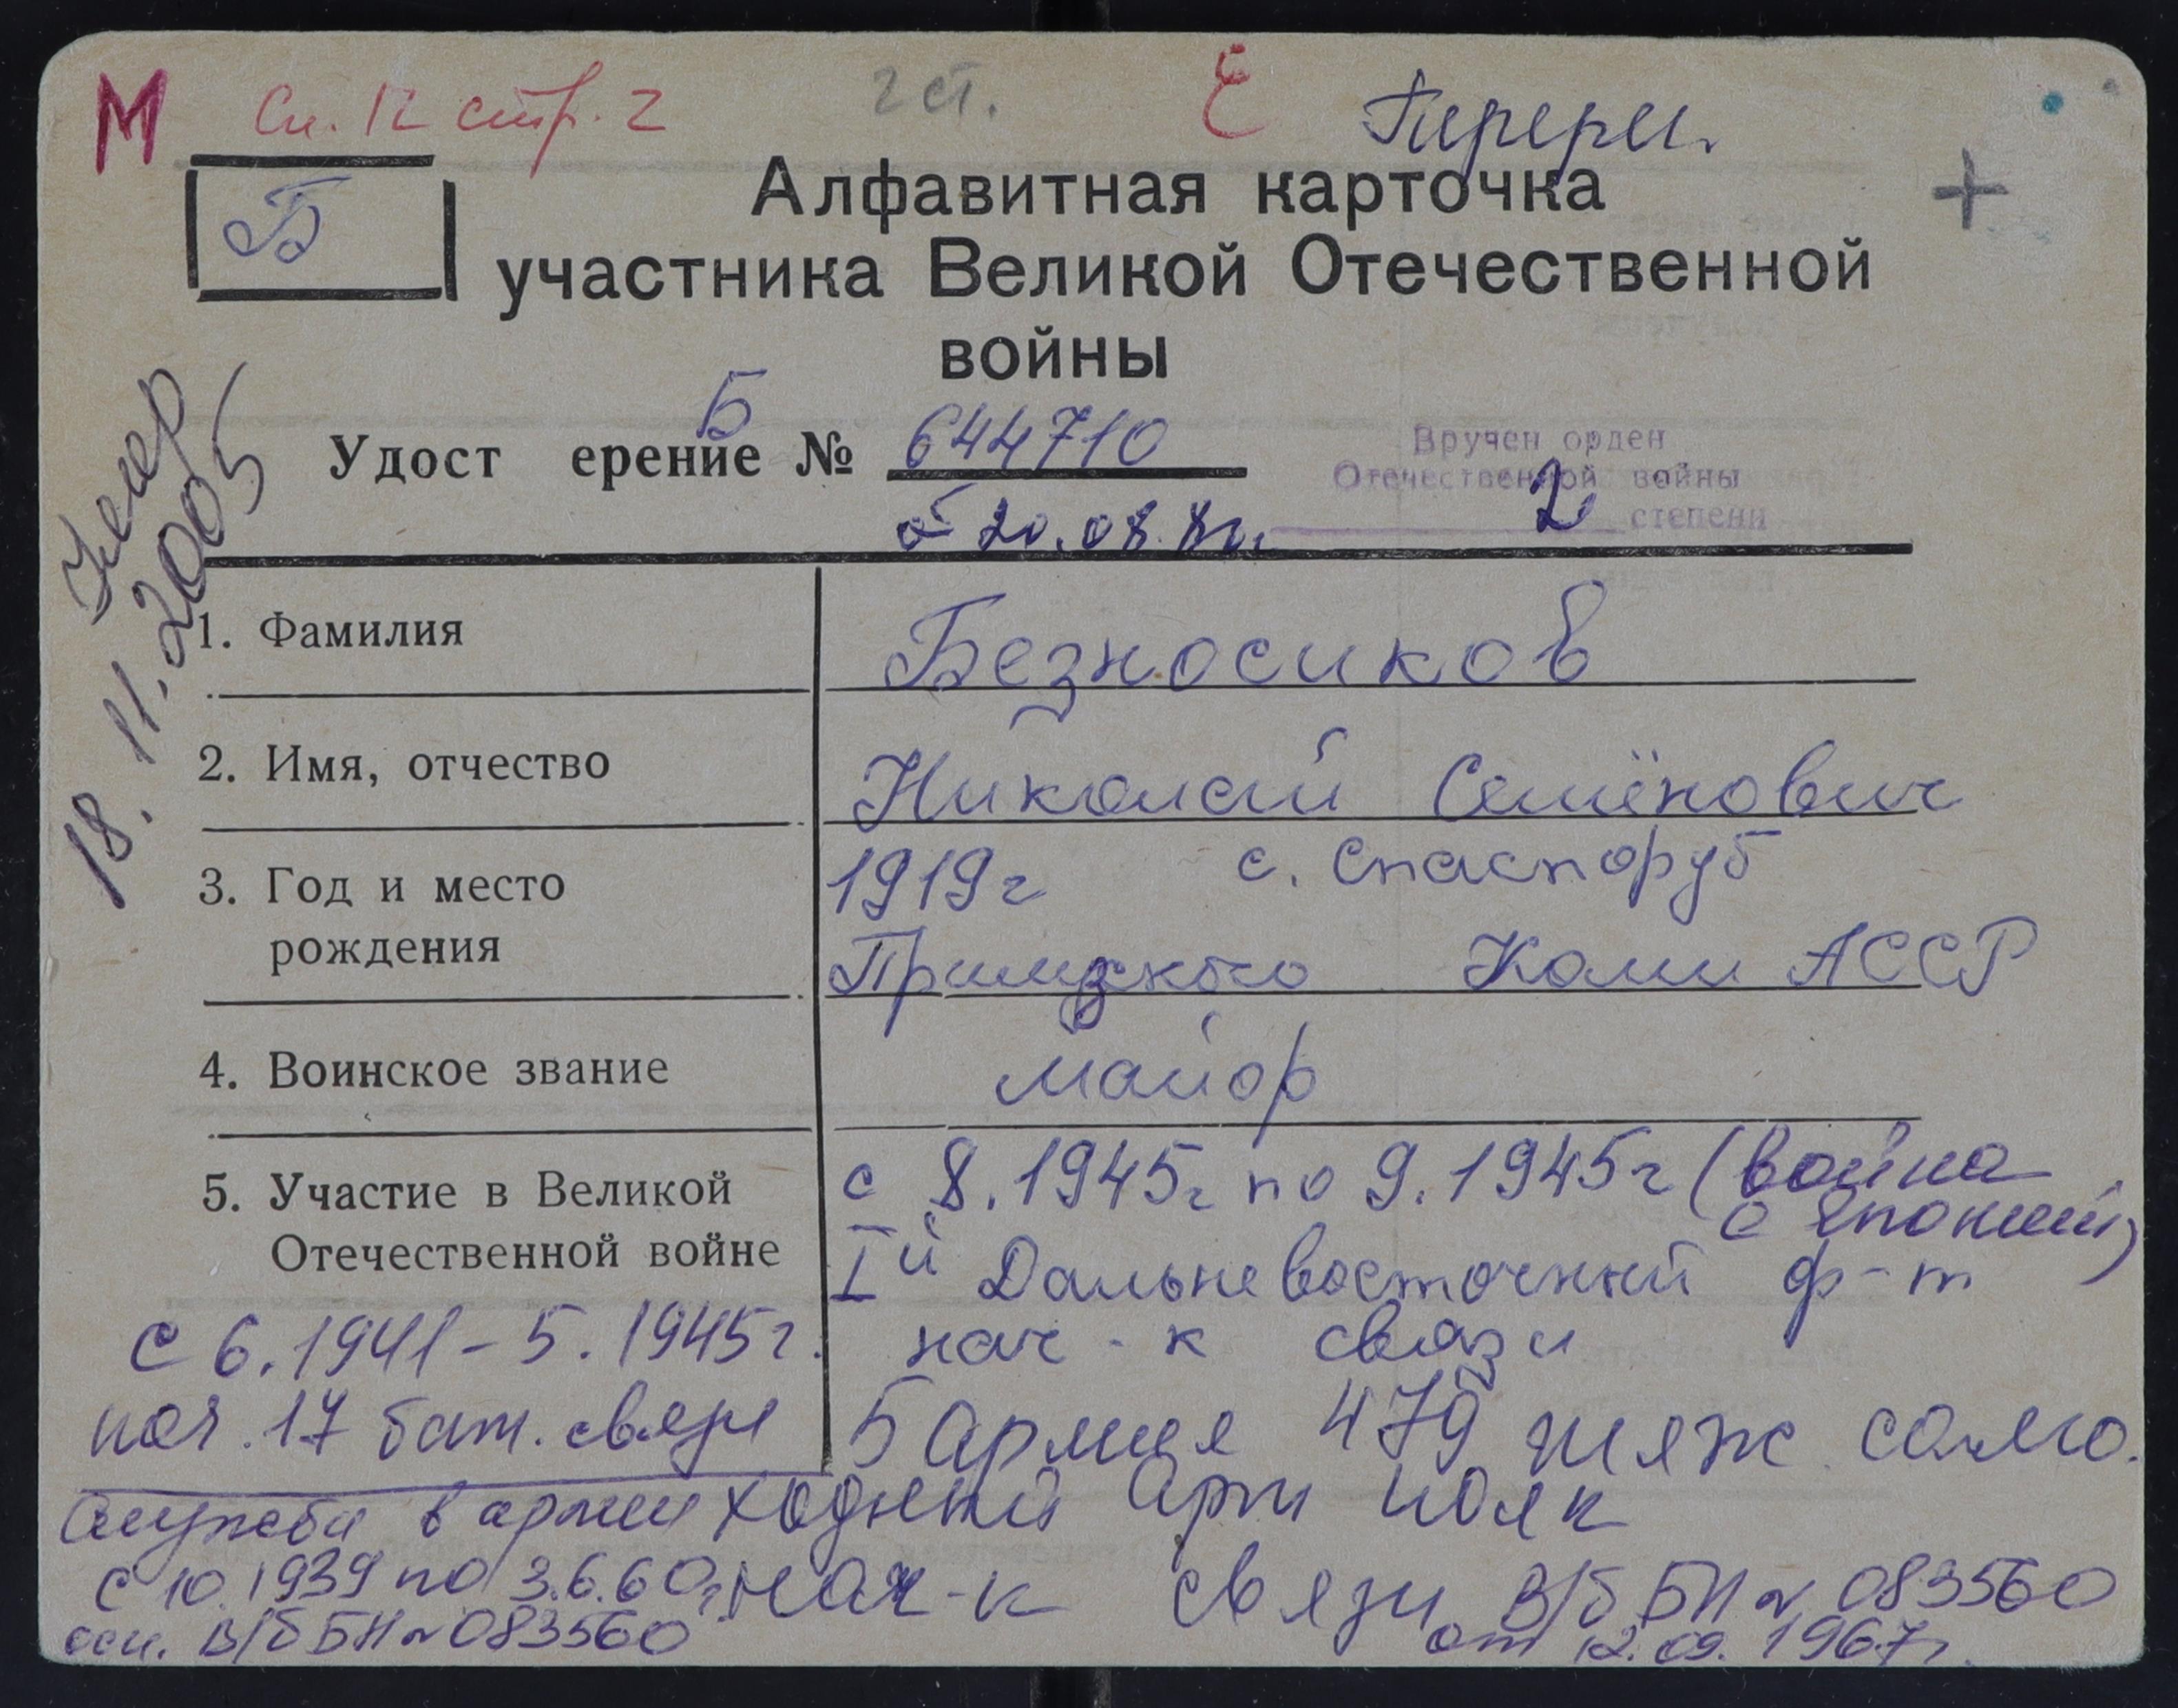 М Сп. 12 стр. 2 2 ст. Е
Б
Алфавитная карточка
участника Великой Отечественной
войны
Б
Удост ерение № 644710
от 20.08.81г.
Вручен орден
Отечественной войны
2 степени
Умер
18.11.2005
1. Фамилия Безносиков
2. Имя, отчество Николай Семёнович
3. Год и место 1919г с. Спаспоруб
рождения Прилузского Коми АССР
4. Воинское звание майор
5. Участие в Великой с 8.1945г по 9.1945г (война
с Японией)
Отечественной войне Iй Дальневосточный ф-т
с 6.1941-5.1945г. нач-к связи
нач. 17 бат. связи 5 армия 479 тяж. само
Служба в армии ходный арт полк
с 10.1939 по 3.6.60г. нач-к связи В/б БН № 083560
осн. В/б БН № 083560 от 12.09.1967г.